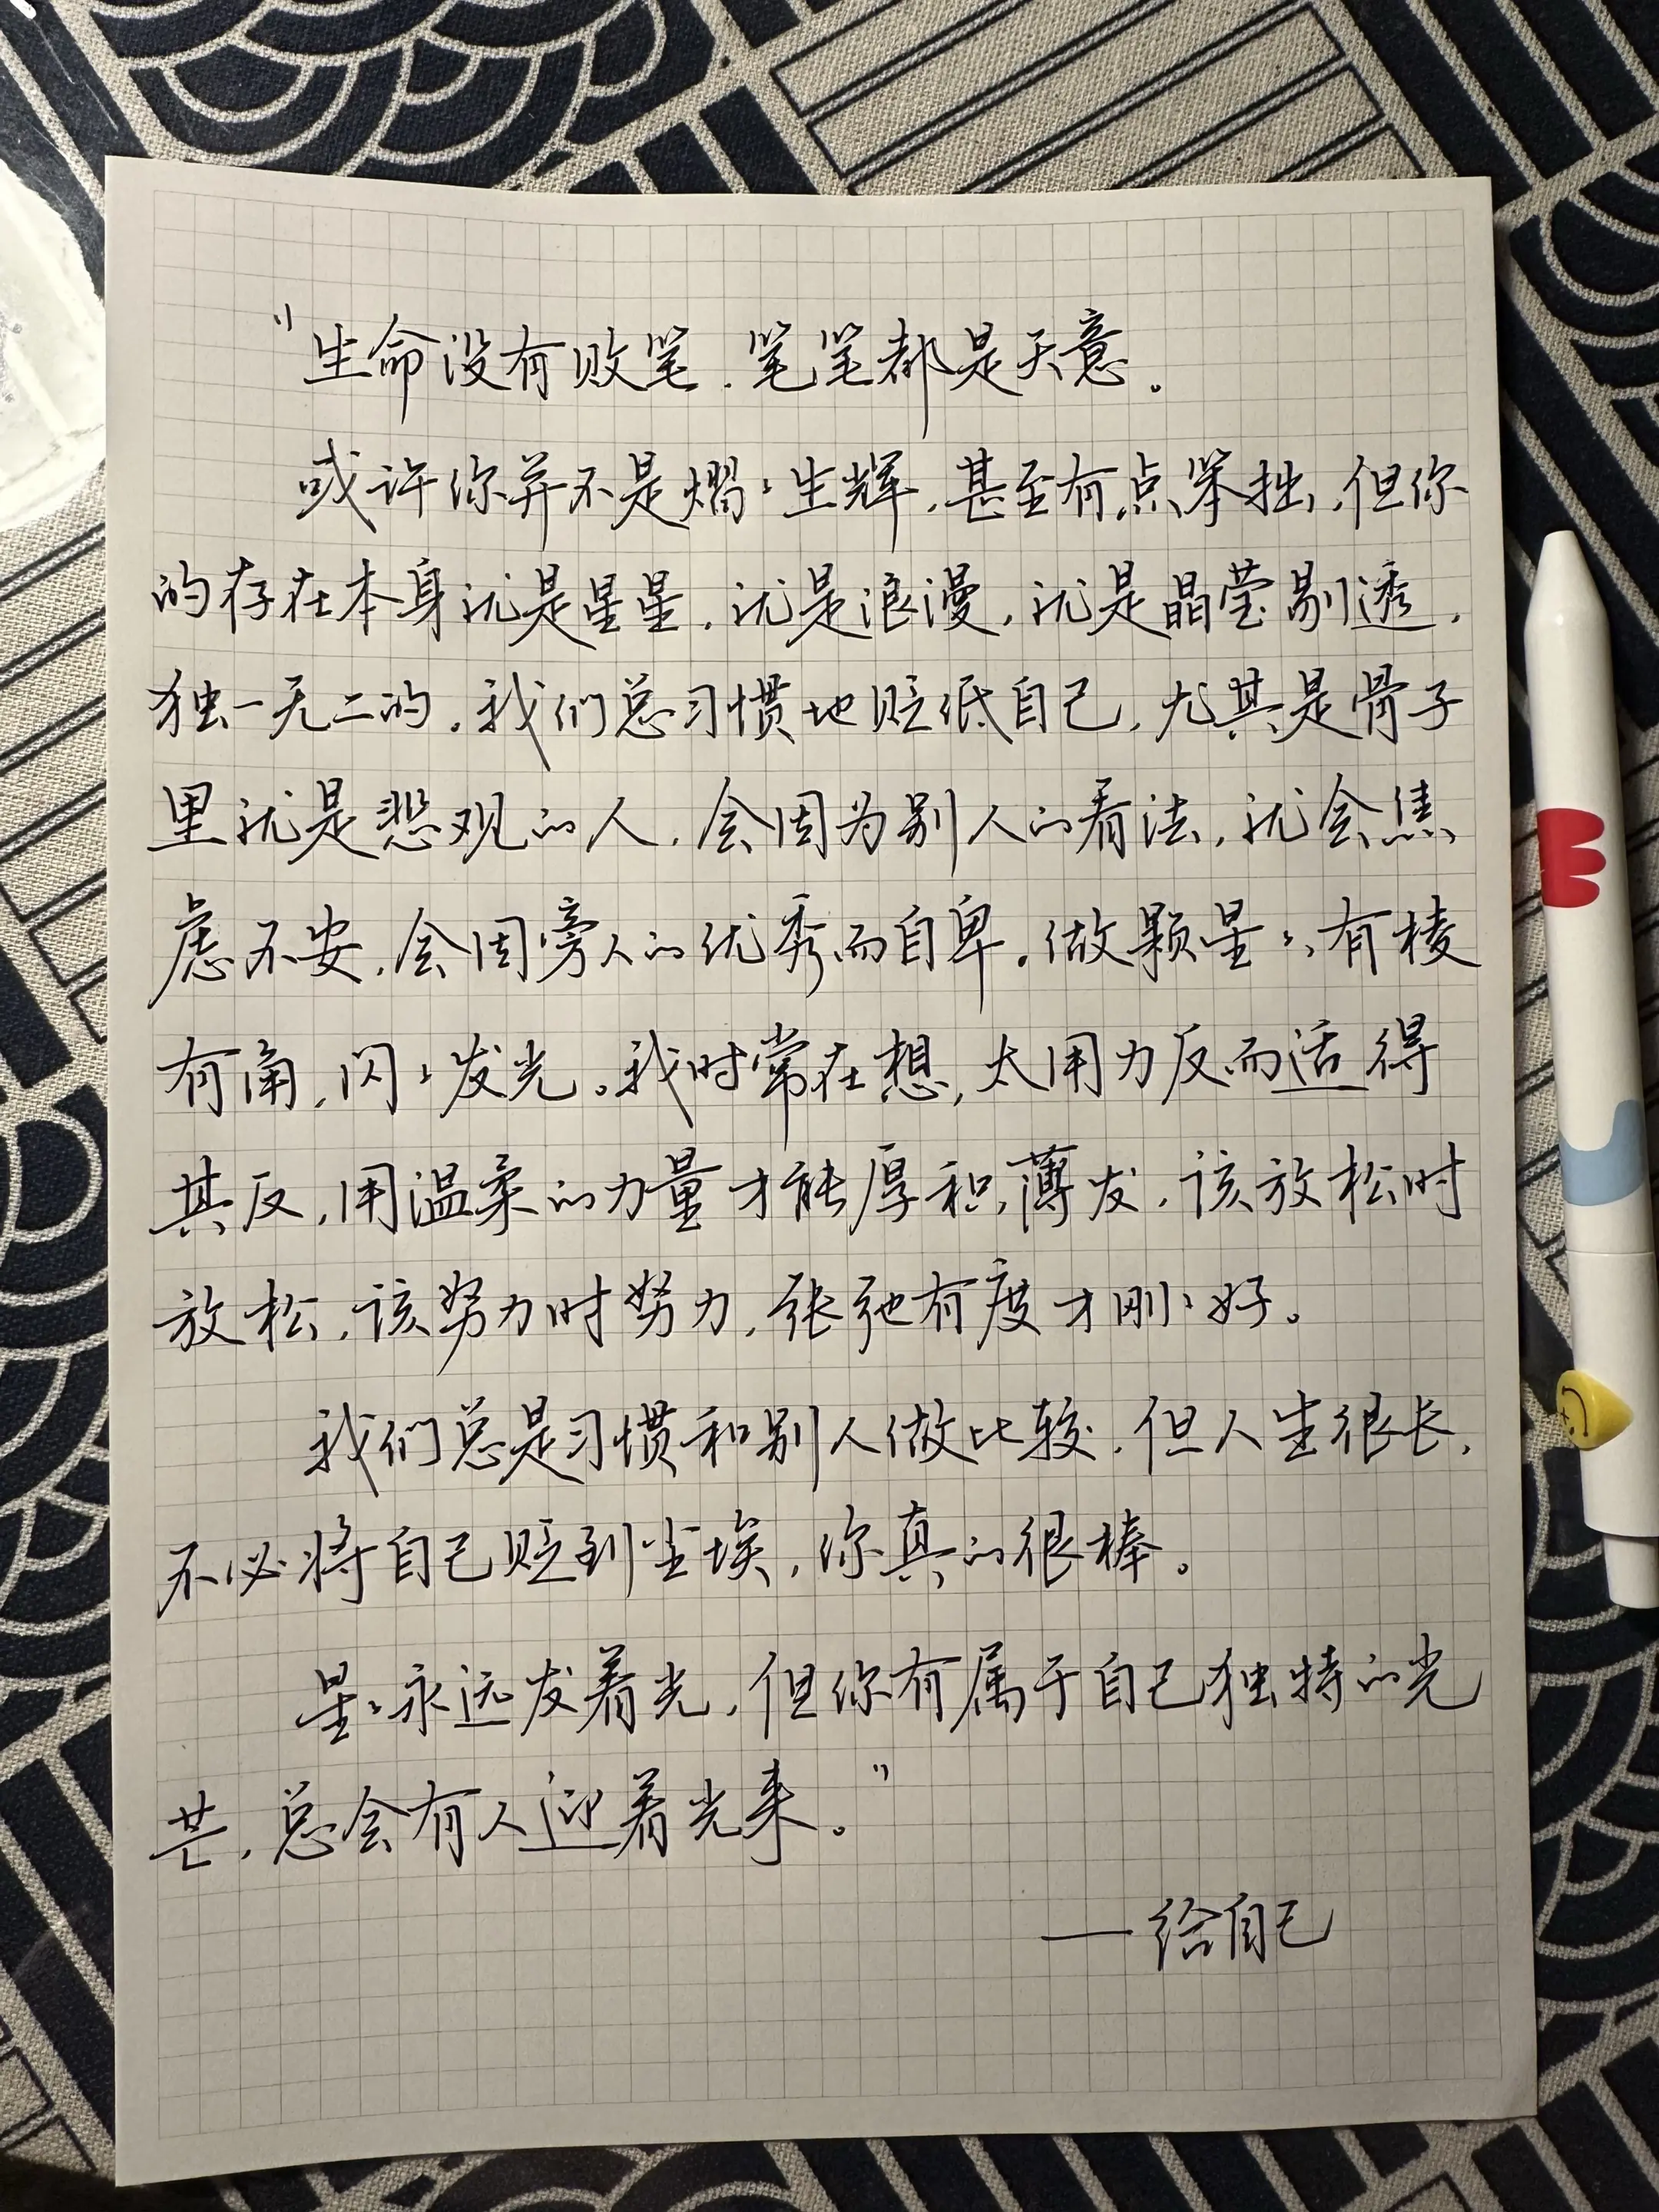 "生命没有败笔,笔笔都是天意。
或许你并不是熠々生辉,甚至有点笨拙,但你
的存在本身就是星星,就是浪漫,就是晶莹剔透,
独一无二的。我们总习惯地贬低自己,尤其是骨子
里就是悲观的人,会因为别人的看法,就会焦
虑不安,会因旁人的优秀而自卑。做颗星々,有棱
有角,闪々发光。我时常在想,太用力反而适得
其反,用温柔的力量才能厚积薄发,该放松时
放松,该努力时努力,张弛有度才刚々好。
我们总是习惯和别人做比较,但人生很长,
不必将自己贬到尘埃,你真的很棒。
星々永远发着光,但你有属于自己独特的光
芒,总会有人迎着光来。"
—给自己